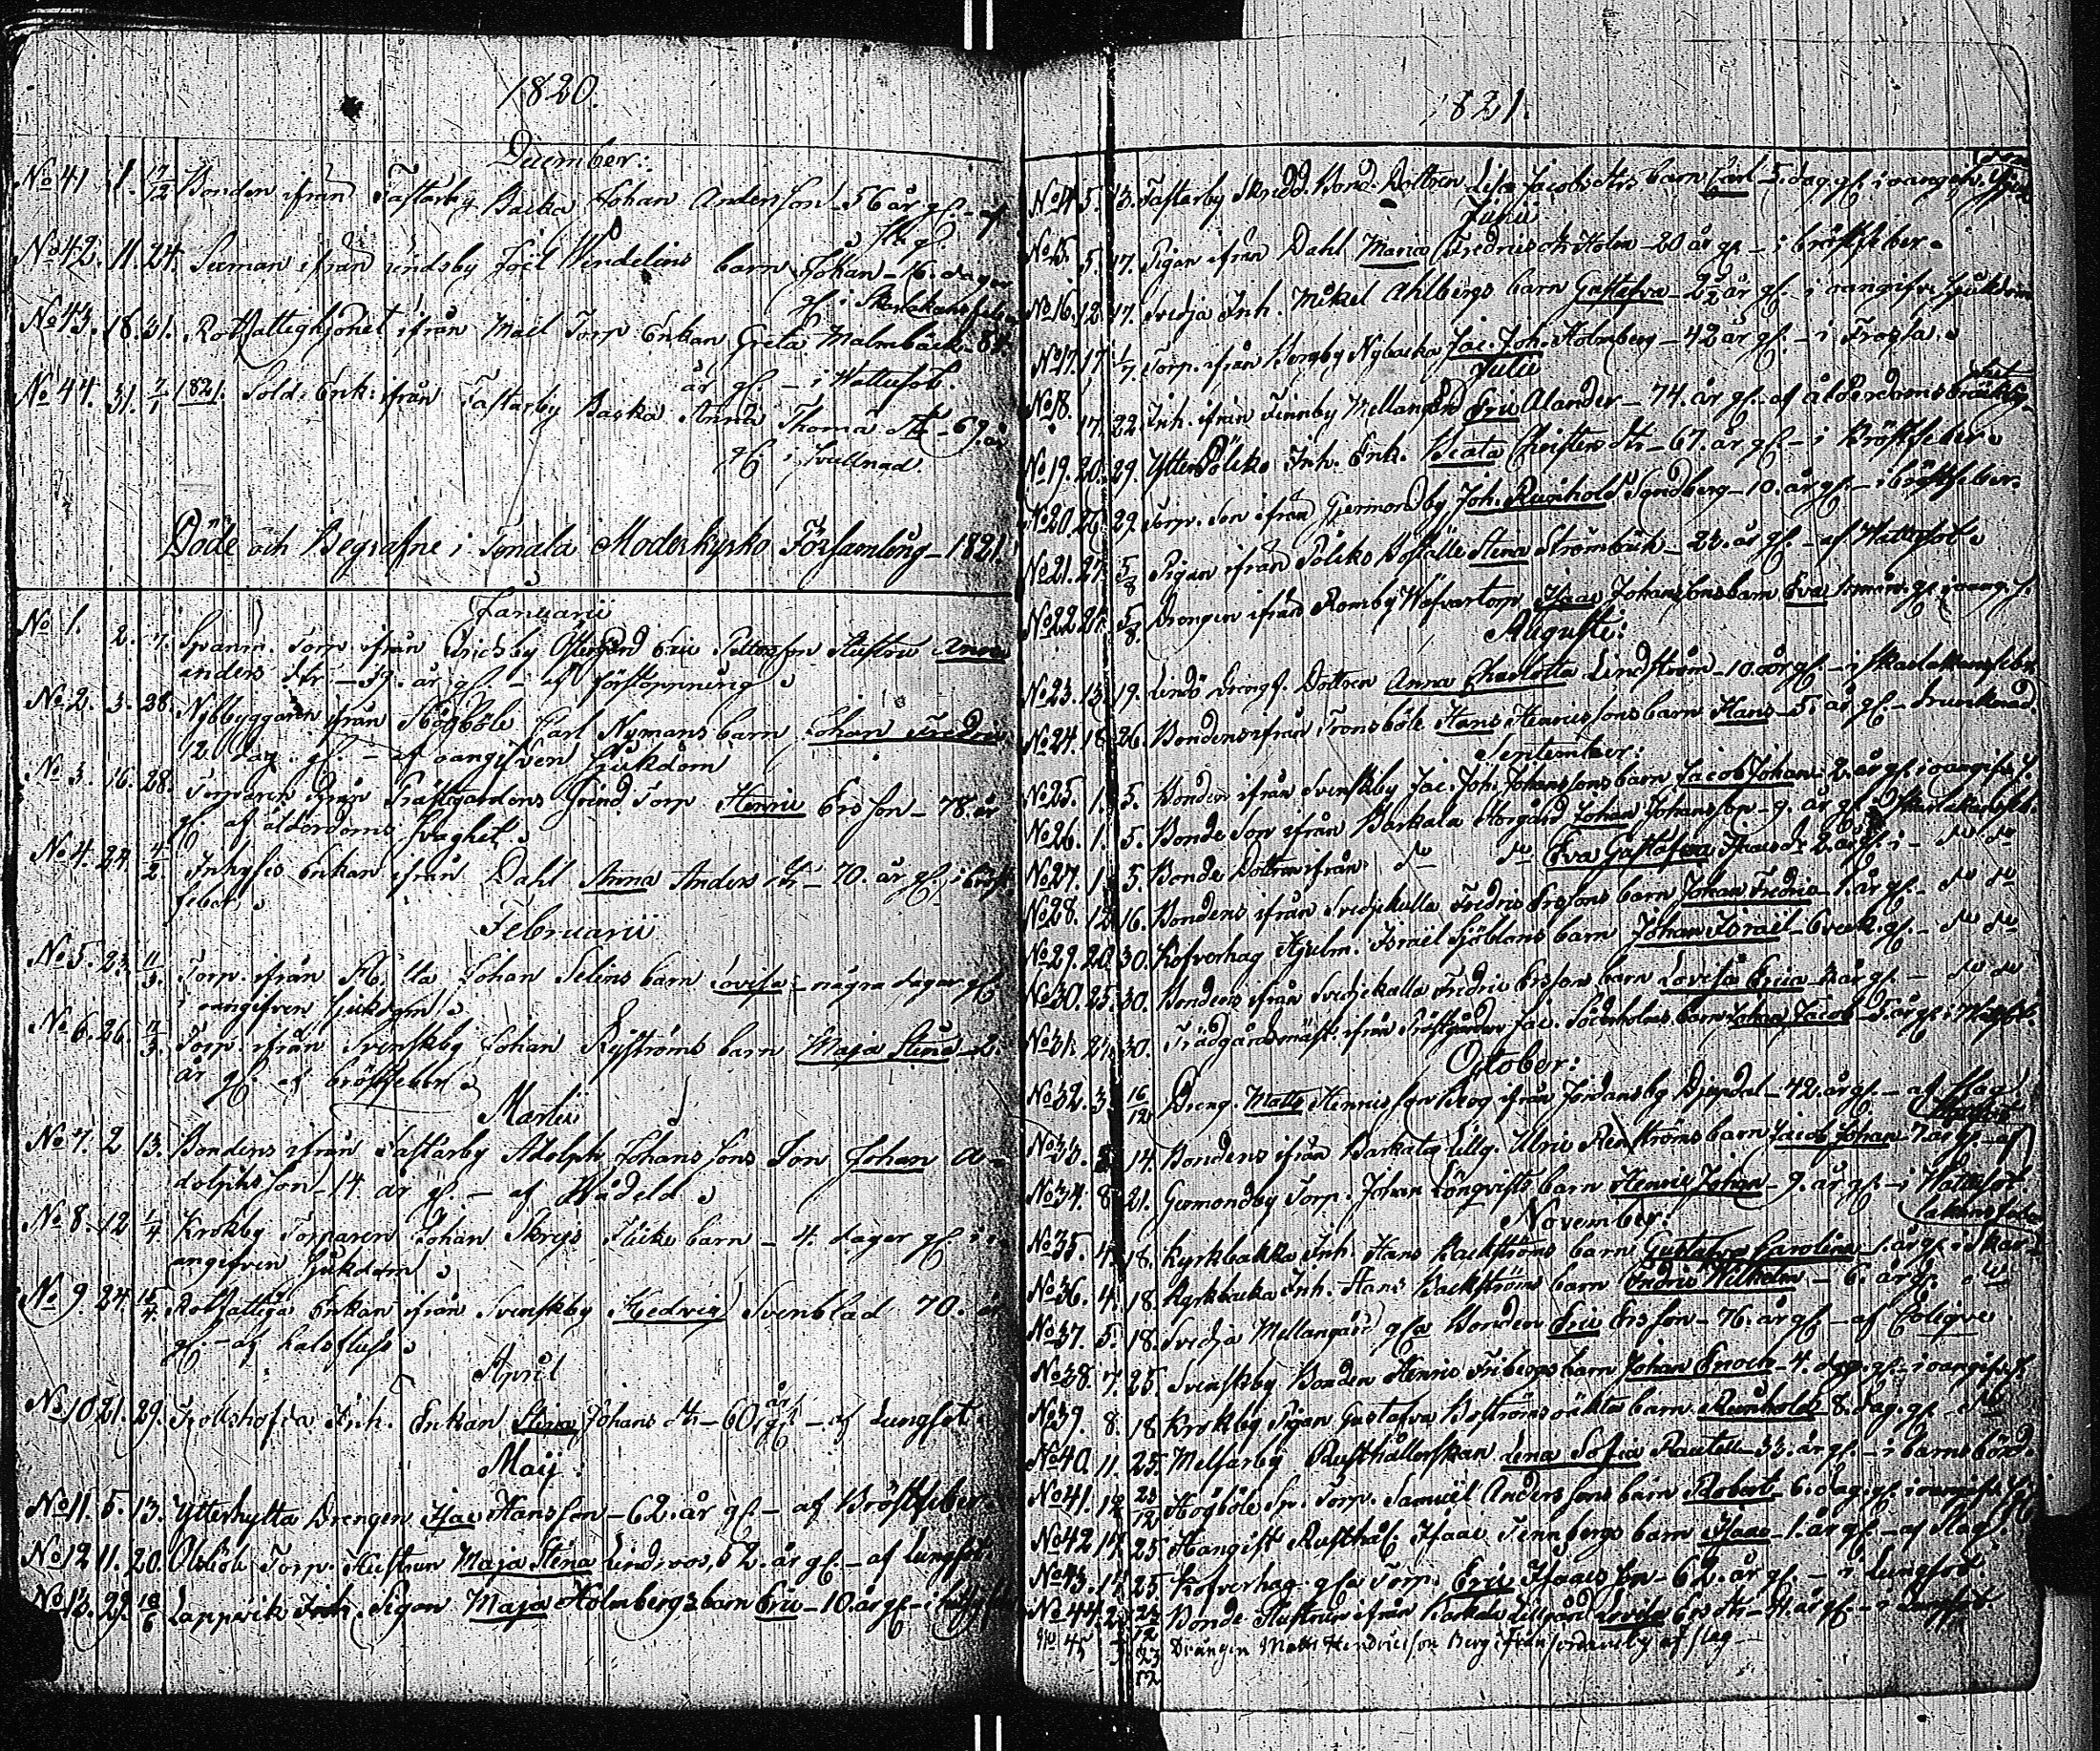 1820.
December:
No 41. 1. 17/12 Bonden ifrån Fastarby Backa Johan Andersson - 56 år gl. - af
No 42. 11. 24. Seeman ifrån Lindsby Joel Wendelins barn Johan - 16. dagar
gl. i Skarlakansfeber
No 43. 18. 31. Rotfattighjonet ifrån Torp Enkan Greta Malmback - 84.
år gl. - i Wattusot.
No 44. 31. 7/1 1821. Sold. Enk: ifrån Fastarby Backa Anna Thomæ dtr - 69. år
gl. i Svullnad.
Döde och Begrafne i Tenala Moderkyrko Församling - 1821.
Januarii
No 1. 2. 7. Torp. ifrån Östergård Eric Pettersson Hustru Anna
anders dtr. - 39. år gl. - af förstoppning
No 2. 3. 28. Nybbyggaren ifrån Carl Nymans barn Johan Fredric
12. dag. gl. - af oangifven Sjukdom
No 3. 16. 28. Torparen ifrån Torp Henric Ersson - 78. år
gl. af ålderdoms svaghet.
No 4. 24. 4/2 Inhyses Enkan ifrån Dahl Anna Anders dtr - 70. år gl. i bröst
feber.
Februarii
No 5. 23. 11/3. Torp. ifrån Johan Selins barn Lovisa - några dagar gl.
i oangifven sjukdom.
No 6. 26. 11/3. Torp. ifrån Svenskby Johan Nyströms barn Maja Stina - 2.
år gl. af bröstfeber.
Martii
No 7. 2. 13. Bondens ifrån Fastarby Adolph Johanssons Son Johan A-
dolphsson - 14 år gl. - af Wådeld.
No 8. 12. 1/4 Krokby Torparen Johan Flicke barn - 4. dagar gl. i o-
angifven Sjukdom
No 9. 24. 15/4. Rotfattiga Enkan ifrån Svenskby Hedvig Svenblad 70. år
gl. - af halsfluss.
April
No 10. 21. 29. Trollshofda Inh. Enkan Stina Johans dtr - 60 år gl. - af Lungsot.
Maij.
No 11. 5. 13. Ytterkylta Drengen Isac Hansson - 62. år gl. - af Bröstfeber.
No 12. 11. 20. Olsböle Torp. Hustrun Maja Stina Lindroos, 52. år gl. - af Lungsot.
No 13. 29. 10/6 Lappvik Inh. Pigan Maja Holmbergs barn Eric - 10. år gl. - i
1821.
No 14. 5. 13. Fastarby Skredd. Bond. Dottren Lisa Jacobs dtrs barn Carl - 5. dag. gl. i oangifv.
Junii
No 15. 5. 17. Pigan ifrån Dahl Maria Fredrics dtr Holm - 20 år gl. - i bröstfeber.
No 16. 12. 17. Svedja Inh. Mikel Ahlbergs barn Gustafva - 2 1/2 år gl. i oangifv. Sjukdom
No 17. 17. 1/7. Torp. ifrån Bergby Nybacka Jac. Joh. Holmberg - 42 år gl. - i Frossa.
Julii
No 18. 17. 22. Inh. ifrån Finnby Mellangård Eric Alander - 74. år gl. - af ålderdoms bräcklig-
het
No 19. 20. 29. Inh. Enk. Beata Christers dtr - 67. år gl. - i Bröstfeber.
No 20. 26. 29. Torp. Son ifrån Germondby Joh. Reinhold Sandberg - 10. år gl. - i bröstfeber.
No 21. 27. 5/8 Pigan ifrån Boställe Stina Strömbäck - 23. år gl. - af Wattusot.
No 22. 27. 5/8. Drengen ifrån Romby Isaac Johanssons barn Eva gl. i oang. S.
Augusti:
No 23. 13. 19. Lindö Drengs. Dottren Anna Charlotta Lindström - 10. år gl. - i skarlakansfeber
No 24. 18. 26. Bondens ifrån Trönsböle Hans Henricssons barn Hans - 5. år gl. - drunknad.
September:
No 25. 1. 5. Bonden ifrån Svenskby Jac. Joh. Johanssons barn Jacob Johan - 2. år gl. i oangifv. S.
No 26. 1. 5. Bonde Son ifrån Barkala Storgård Johan Johansson - 9. år gl. i Skarlakansfeb.
No 27. 1. 5. Bonde Dottren ifrån do do Eva Gustafva Isacs dr 2. år gl. i - do do
No 28. 12. 16. Bondens ifrån Svedjekulla Fredric Erssons barn Johan Fredric - 1. år gl. - do do
No 29. 20. 30. Kofverhag Hjulm. Israel Sjöbloms barn Johan Israel - 6 veck. gl. - do do
No 30. 25. 30. Bondens ifrån Svedjekulla Fredric Ersson barn Lovisa Erica - 3 år gl. - do do
No 31. 27. 30. Trädgårdsmäst. ifrån Prästgården Jac. Söderholms barn Johan Jacob - 5. år gl. i
October:
No 32. 3. 16/12 Dreng. Matts Henricsson Berg ifrån Jordansby Djepdal - 42. år gl. - af slag
No 33. 14. Bondens ifrån Barkala Lillg. Ulric Renströms barn Jacob Johan - 7. år gl. - af
No 34. 8. 21. Germondby Torp. Johan Lönqvists barn Henric Johan - 9. år gl. - i Wattusot.
November:
lakansfeber
No 35. 4. 18. Kyrkbacka Inh. Hans Backströms barn Gustafva Carolina 1. år gl. i Skar-
No 36. 4. 18. Kyrkbacka Inh. Hans Backströms barn Fredric Wilhelm - 6. år gl. do
No 37. 5. 18. Svedja Mellangård gla Bonden Eric Ersson - 76. år gl. - af Colique
No 38. 7. 25. Svenskby Bonden Henric Fribergs barn Johan Enoch - 4. dag. gl. - i oangifv. S.
No 39. 8. 18. Krokby Pigan Gustafva Boströms oäkta barn Reinhold 8. dag. gl. do
No 40. 11. 25. Melsarby Rusthållerskan Lena Sofia Rautell - 33. år gl. - i barnsbörd.
No 41. 18. 23/12. Högböle Sp. Torp. Samuel Anderssons barn Robert - 6. dag. gl. i oangifv. S.
No 42. 17. 25. Hangist Rusthåll. Isaac Tennbergs barn Isaac - 1. år gl. - af Slag.
No 43. 17. 25. Kofverhag gla Torp. Eric Isaacsson - 62. år gl. - i Lungsot.
No 44. 27. 23/12 Bonde Hustrun ifrån Barkala Lillgård Lovisa Ers dtr - 41. år gl. - i Lungsot
No 45. 3. 23/12 Drängen Matts Hendricsson Berg ifrån Jordansby af slag